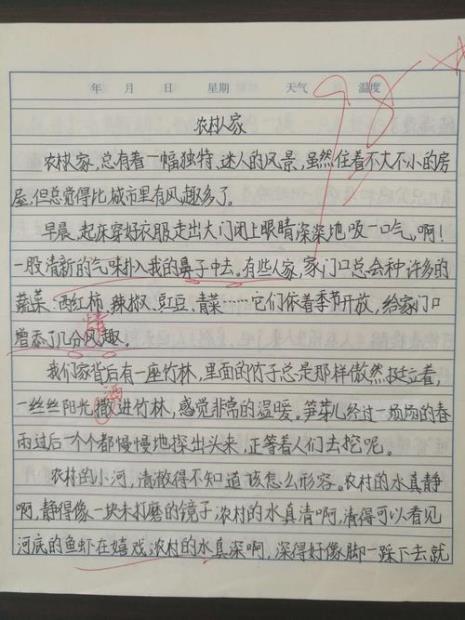 年 月 日 星期 天气 温度
98
农村人家
农村人家，总有着一幅独特、迷人的风景，虽然住着不大不小的房
屋，但总觉得比城市里有风趣多了。
早晨，起床穿好衣服走出大门闭上眼睛深深地吸一口气。啊！
一股清新的气味扑入我的鼻子中去。有些人家，家门口总会种许多的
蔬菜：西红柿、辣椒、豇豆、青菜……它们依着季节开放，给家门口
情
曾添了几分风趣。
我们家背后有一座竹林，里面的竹子总是那样傲然挺立着，
洒
一丝丝阳光撒进竹林，感觉非常的温暖。笋芽儿经过一场场的春
雨过后一个个都慢慢地探出头来，正等着人们去挖呢。
农村的小河，清澈得不知道该怎么形容。农村的水真静
啊，静得像一块未打磨的镜子农村的水真清啊，清得可以看见
河底的鱼虾在嬉戏农村的水真深啊，深得好像脚一踩下去就